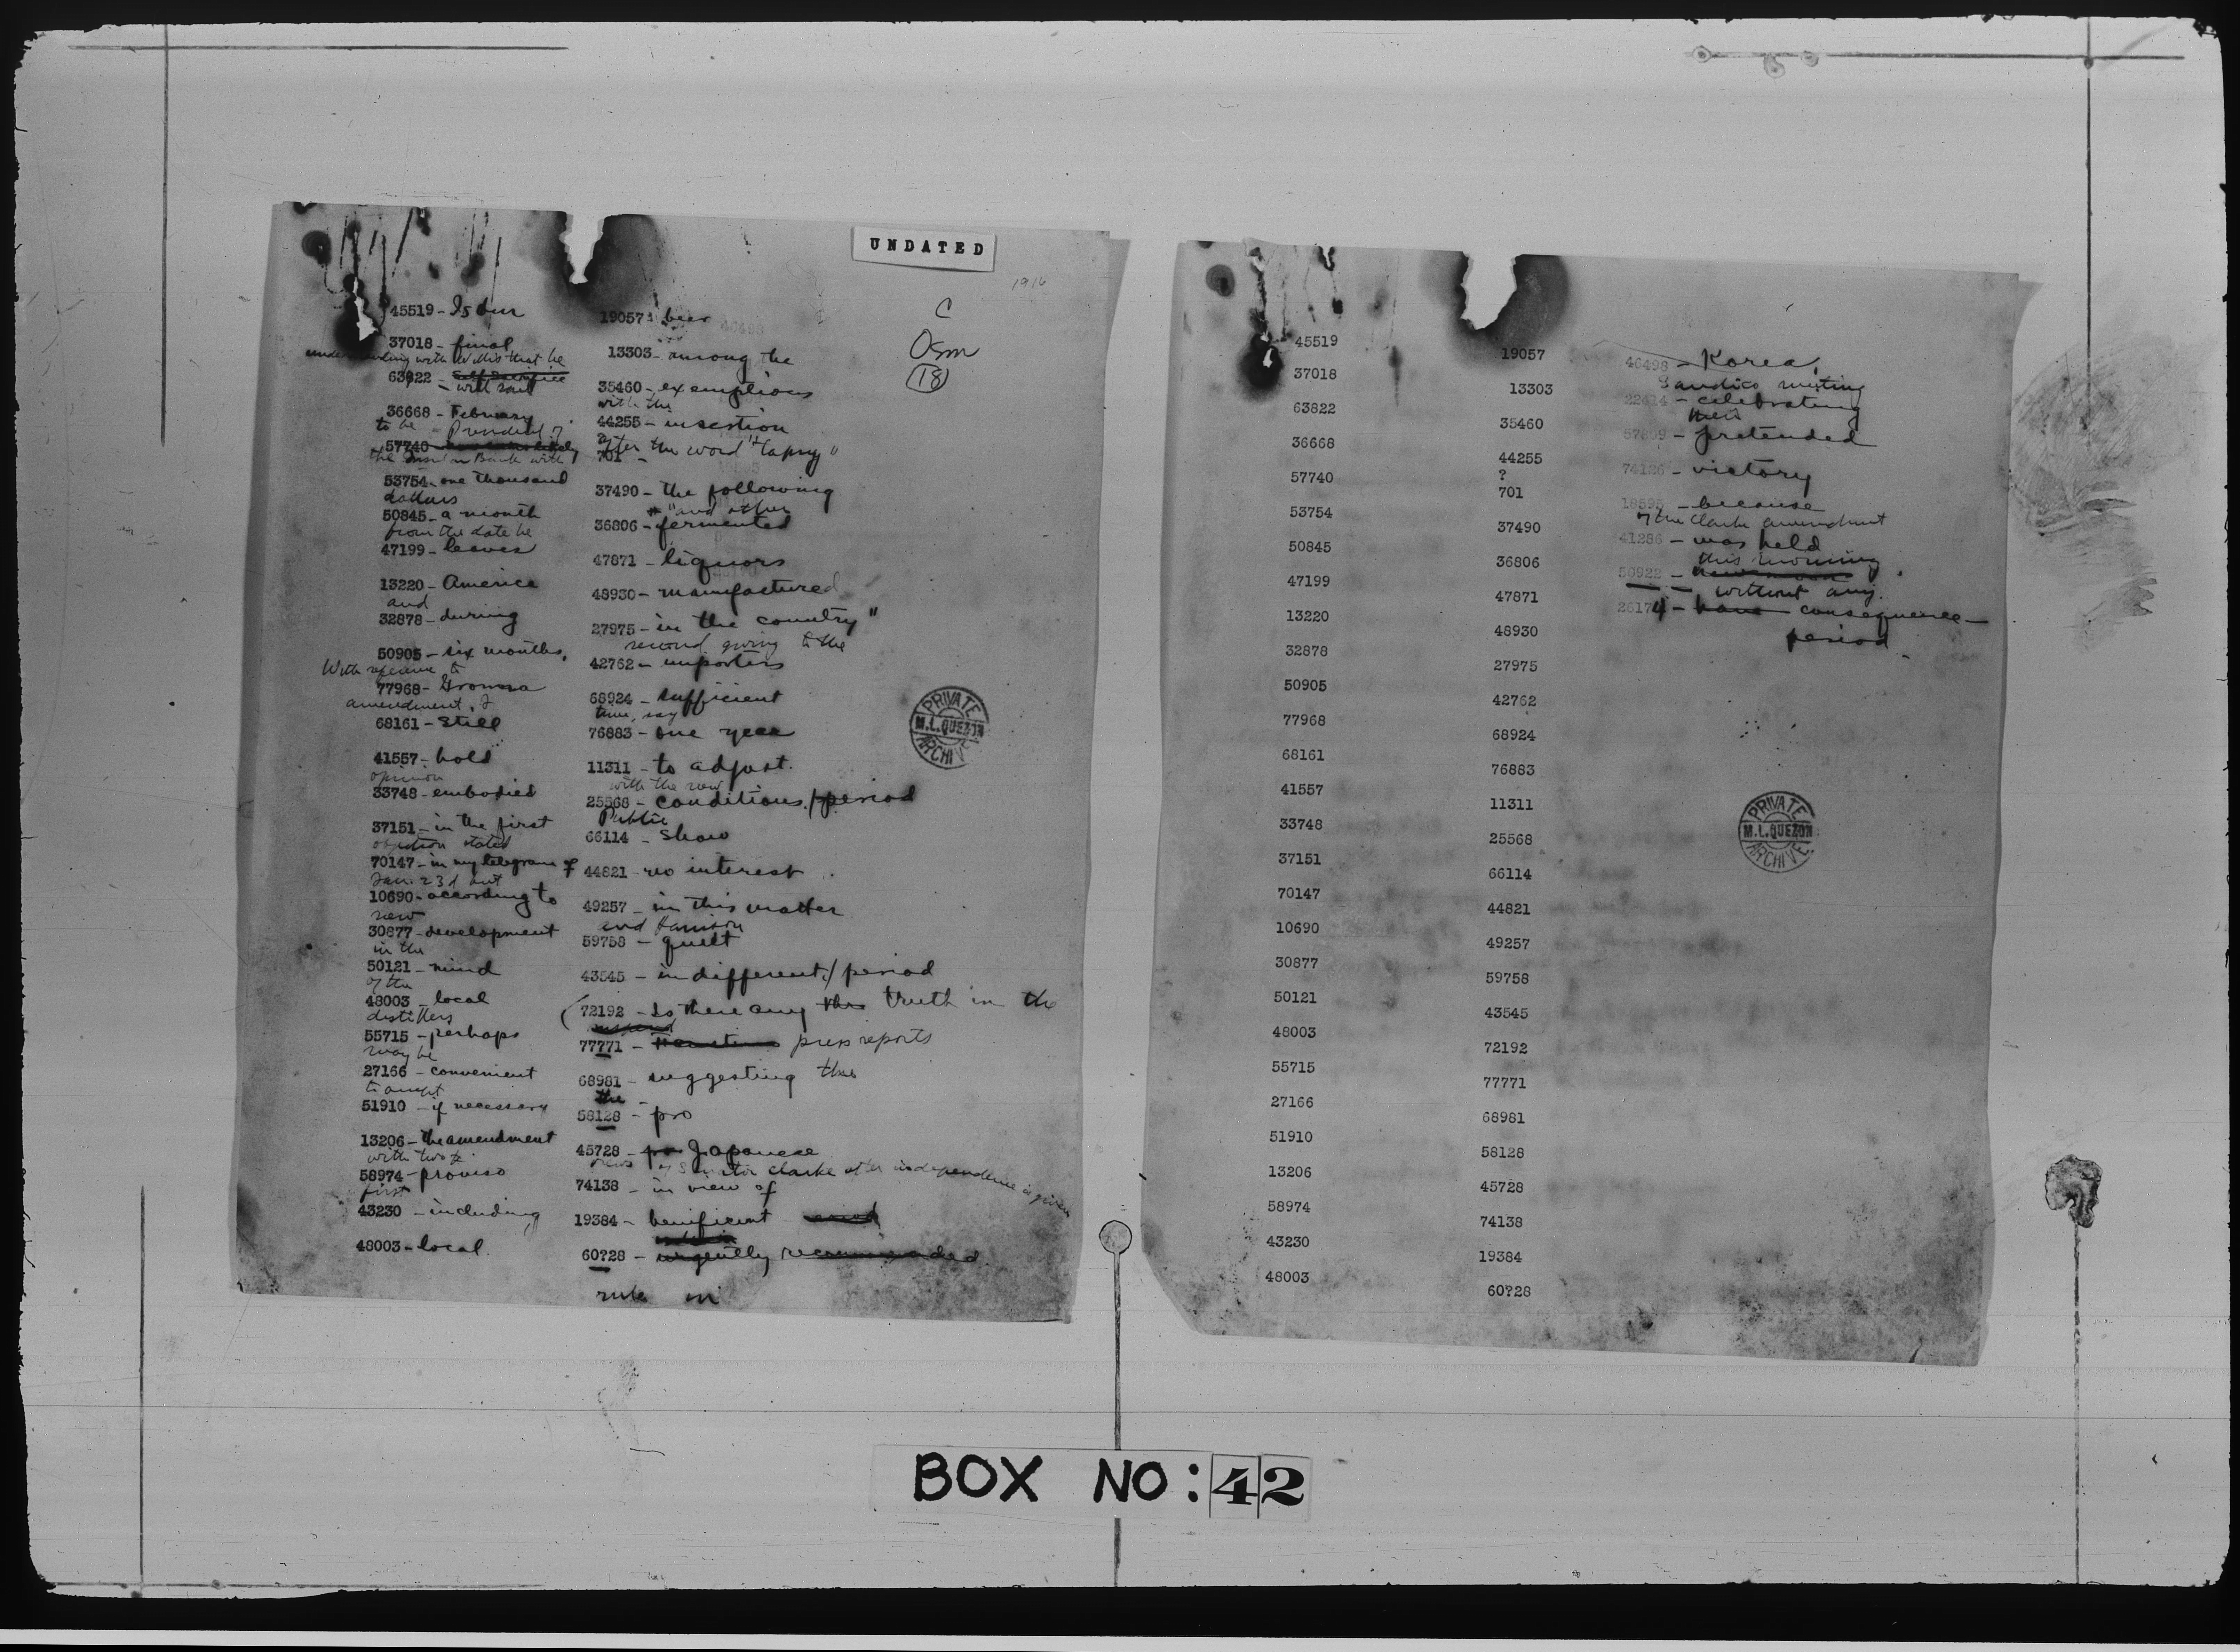 UNDATED
1916
C
Osm
18
45519 - Is our
37018 - final
understanding with Willis that he
63822 - self sacrifice
- will sail
36668 - February
to be - President of
57740
the Bank with
53754 - one thousand
dollars
50845 - a month
from the date he
47199 - leaves
13220 - America
and
32878 - during
50905 - six months,
With reference to
77968 - Gronna
amendment, I
68161 - still
41557 - hold
opinion
33748 - embodied
37151 - in the first
objection stated
70147 - in my telegram of
Jan. 23d but
10690 - according to
new
30877 - development
in the
50121 - mind
of the
48003 - local
distillers
55715 - perhaps
may be
27166 - convenient
to accept
51910 - if necessary
13206 - the amendment
with two
58974 - proviso
first
43230 - including
48003 - local.
19057 - beer
13303 - among the
35460 - exemptions
with the
44255 - insertion
after the word "tapuy"
701 -
37490 - the following
"and other
36806 - fermented
47871 - liquors
48930 - manufactured
27975 - in the country"
second, giving to the
42762 - importers
68924 - sufficient
time, say
76883 - one year
11311 - to adjust.
with the new
25568 - conditions./period
Public
66114 - show
44821 - no interest
49257 - in this matter
and Harrison
59758 - quiet
43545 - indifferent/period
(72192 - Is there any this truth in the
77771 - press reports
68981 - suggesting the
the -
58128 - pro
45728 - pro Japanese
views of Senator Clarke after independence is given
74138 - in view of
19384 - benificent
60?28 - urgently recommended
rule in
PRIVATE
M.L.QUEZON
ARCHIVE
45519
37018
63822
36668
57740
53754
50845
47199
13220
32878
50905
77968
68161
41557
33748
37151
70147
10690
30877
50121
48003
55715
27166
51910
13206
58974
43230
48003
19057
13303
35460
44255
?
701
37490
36806
47871
48930
27975
42762
68924
76883
11311
25568
66114
44821
49257
59758
43545
72192
77771
68981
58128
45728
74138
19384
60?28
40498 - Korea.
Sandico meeting
22414 - celebrating
their
57809 - pretended
74126 - victory
18595 - because
of the Clarke amendment
41286 - was held
this morning
50922 -
without any
26174 - have consequence -
period
PRIVATE
M.L.QUEZON
ARCHIVE
BOX NO: 42